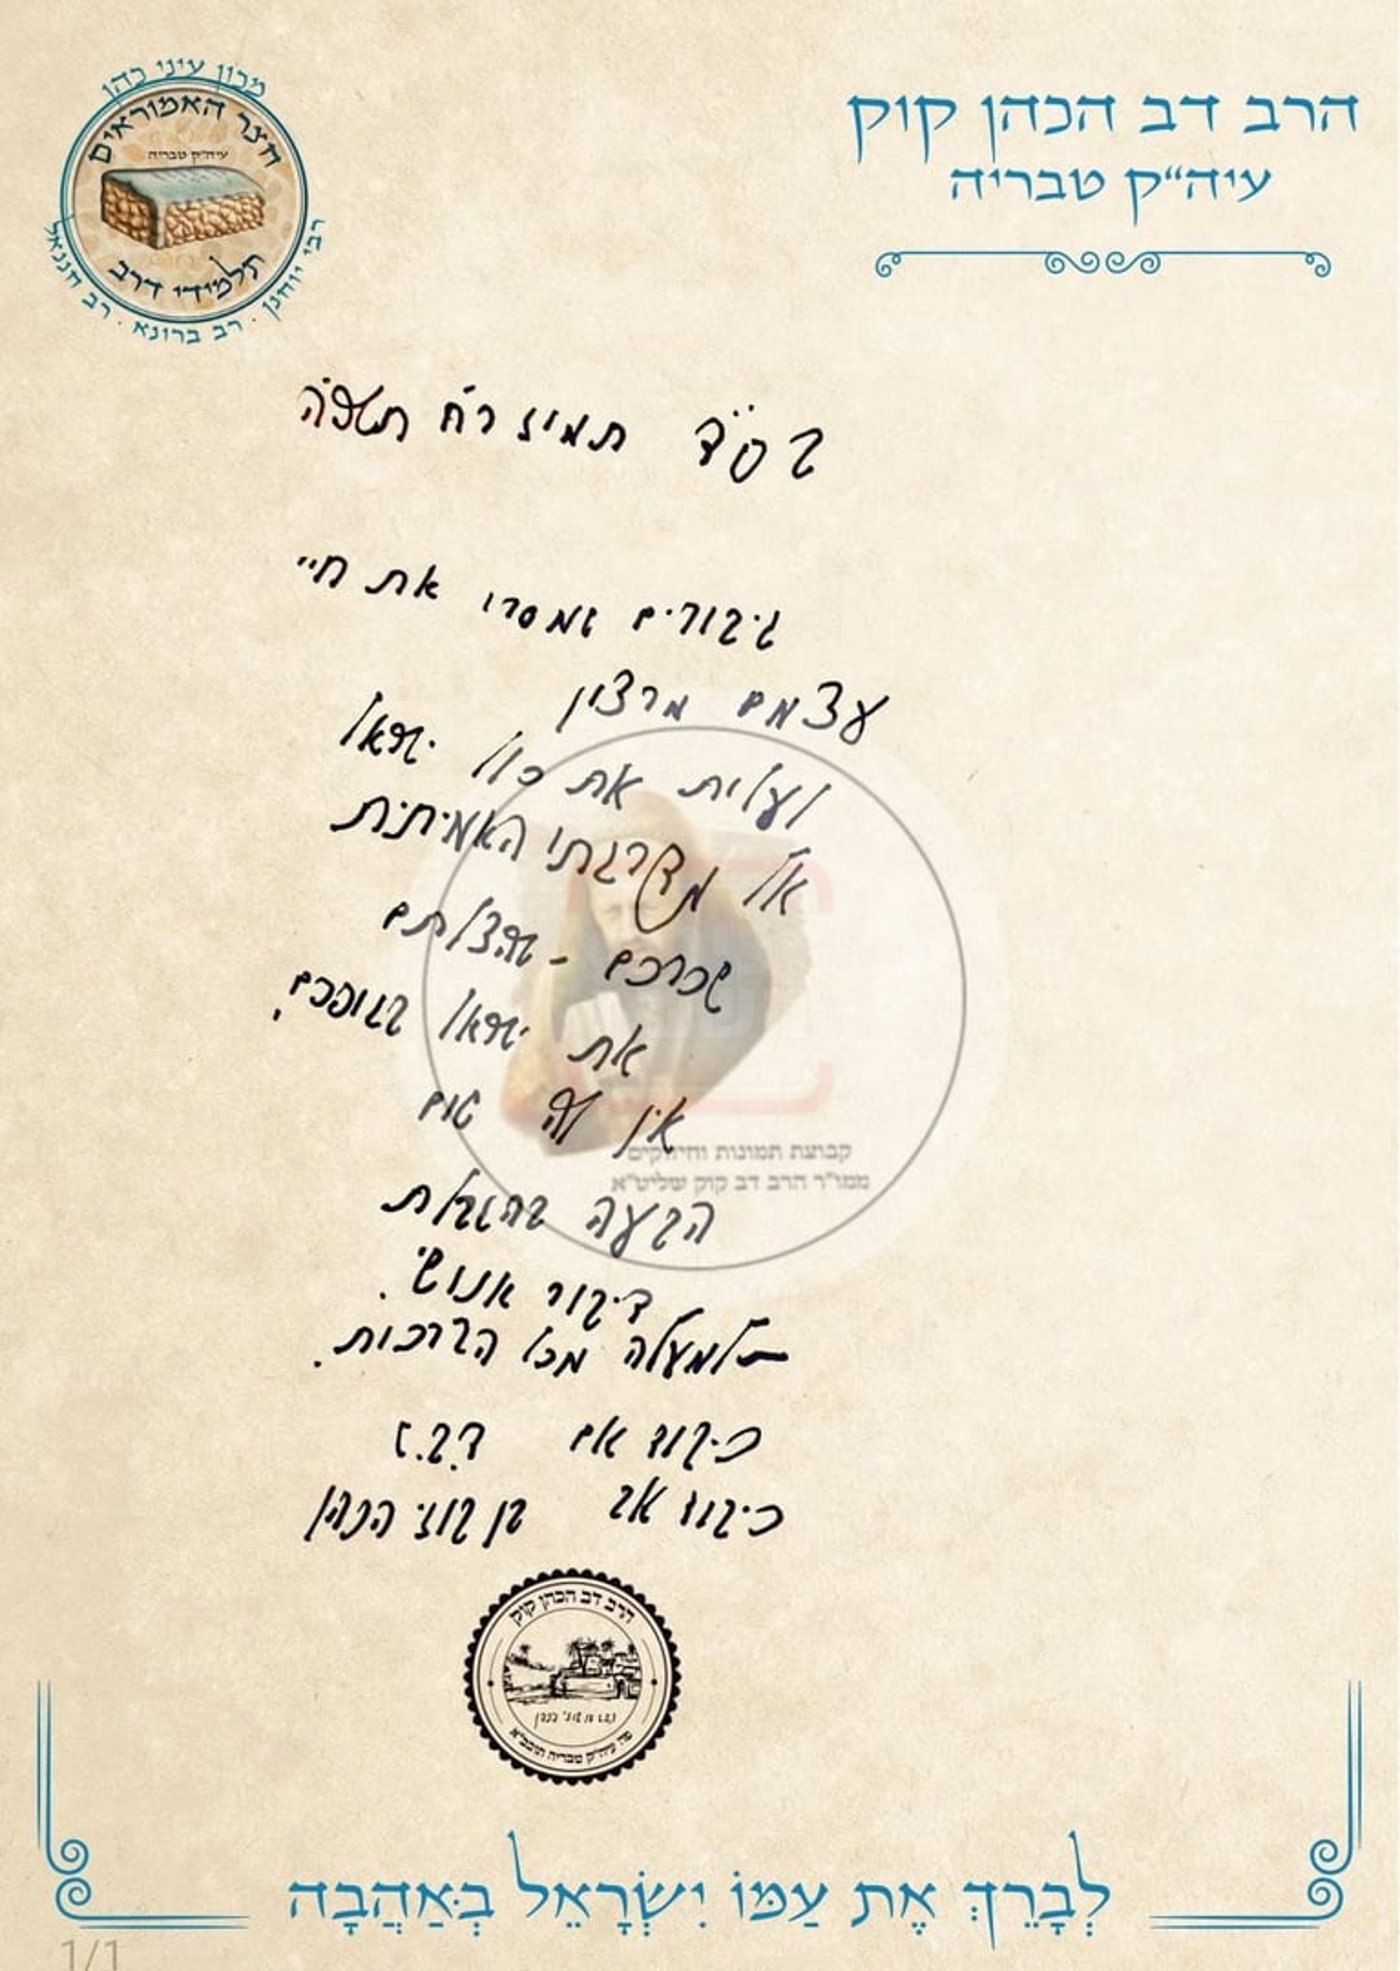 הרב דב הכהן קוק
עיה"ק טבריה
מכון עיני כהן
חצר האמוראים
עיה"ק טבריה
תלמידי דרב
רבי יוחנן · רב ברונא · רב חננאל
בס"ד תמיז ר"ח תשפ"ה
גיבורים שמסרו את חיי
עצמם מרצון
לעלית את כלל ישראל
אל מדרגתי האמיתית
שכרכם - שהצלתם
את ישראל בגופכם.
אין לזה שום
הבעה בהגבלת
דיבור אנושי.
למעלה מכל הברכות.
כיבוד אם ד.ב.ז
כיבוד אב בן קוזי הכהן
קבוצת תמונות וחיזוקים
ממו"ר הרב דב קוק שליט"א
הרב דב הכהן קוק
פה עיה"ק טבריה תובב"א
לְבָרֵךְ אֶת עַמּוֹ יִשְׂרָאֵל בְּאַהֲבָה
1/1